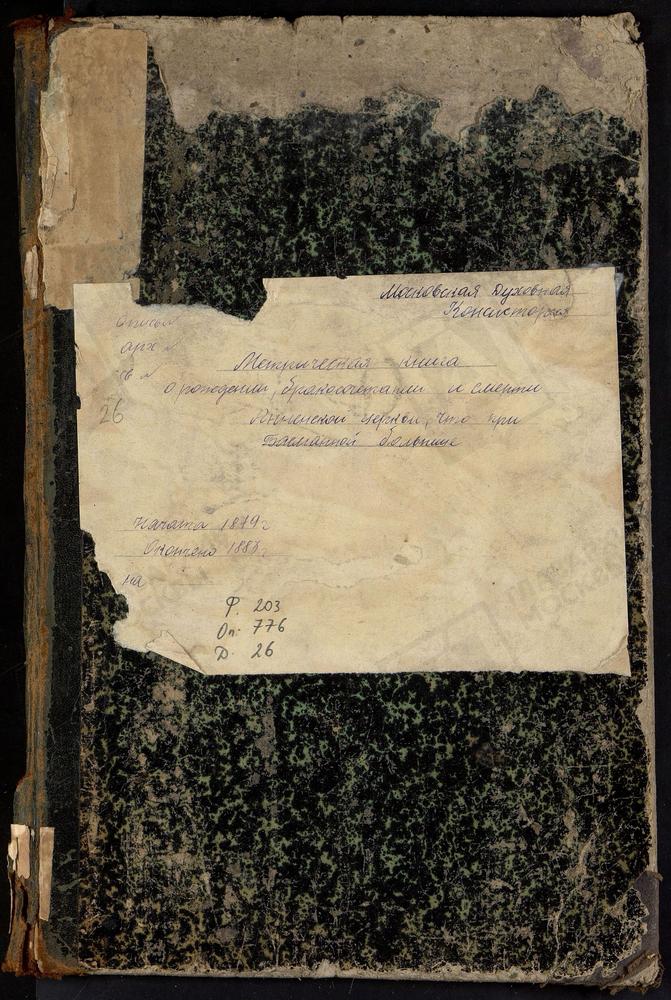 Московская Духовная
Консистория
опись №
арх №
св №
26
Метрическая книга
о рождении, бракосочетании и смерти
церкви, что при
Басманной больнице
Начата 1879 г
Окончено
на
Ф. 203
Оп. 776
Д. 26